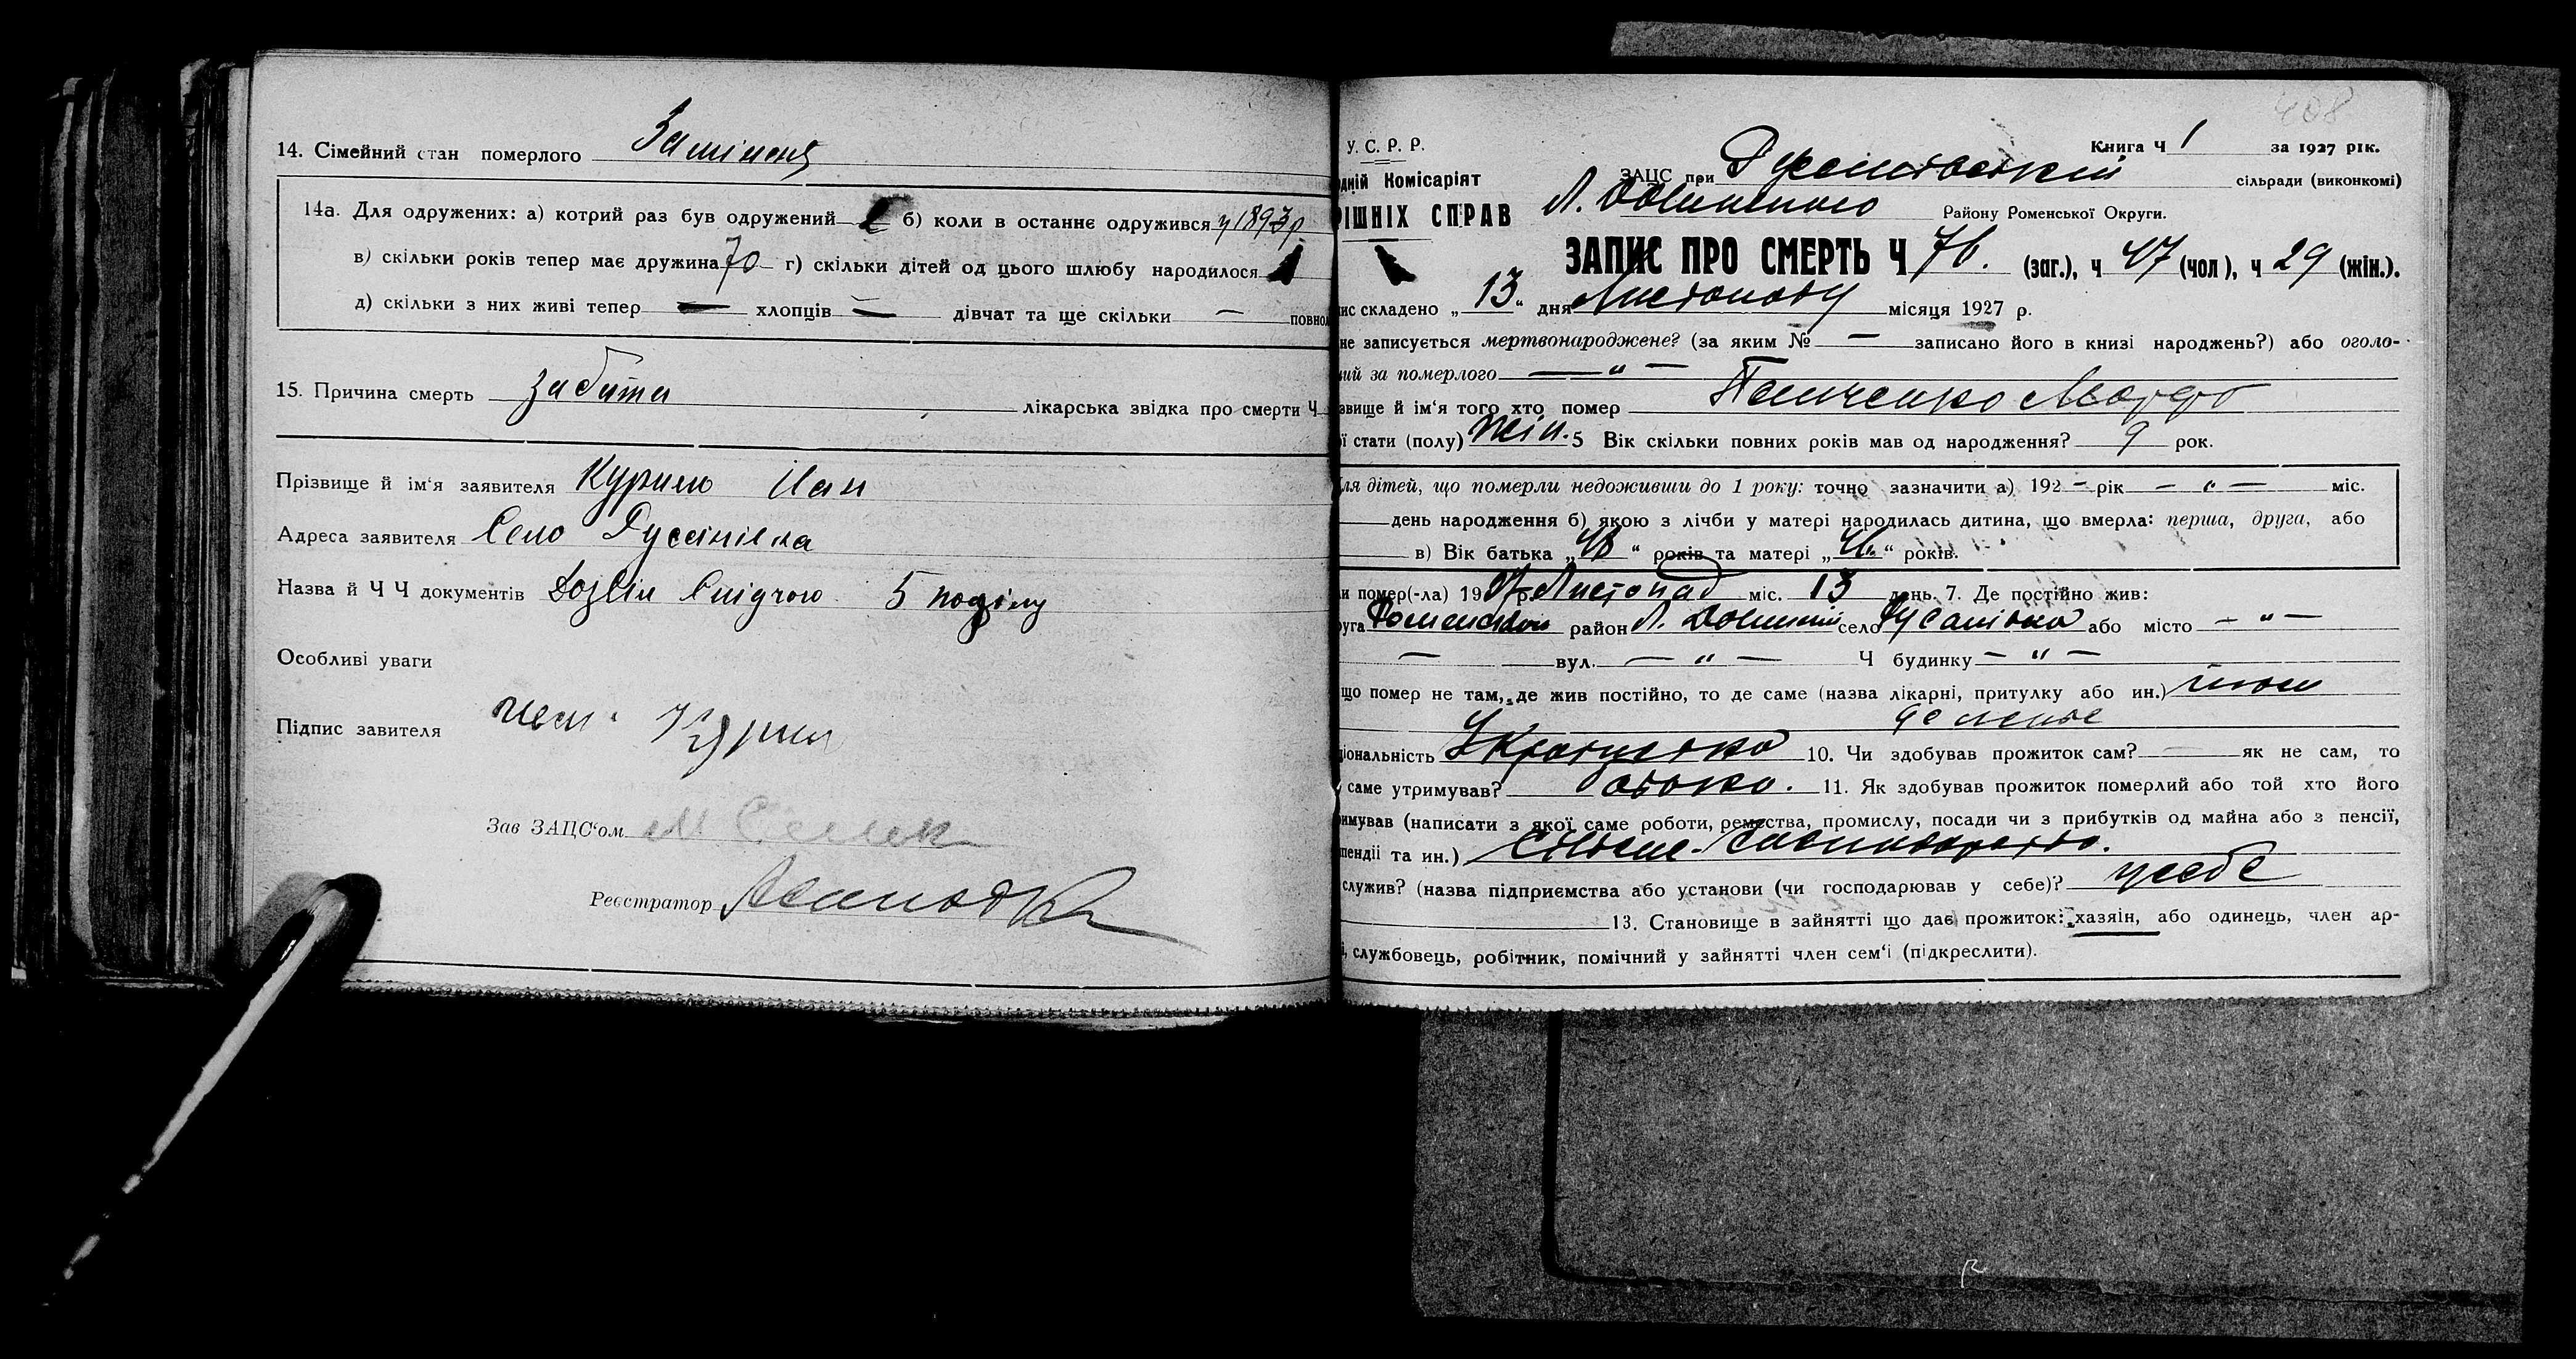 14. Сімейний стан померлого Заміжня
14а. Для одружених: а) котрий раз був одружений б) коли в останнє одружився у 1893 р
в) скільки років тепер має дружина 70 г) скільки дітей од цього шлюбу народилося
д) скільки з них живі тепер — хлопців — дівчат та ще скільки — повнол
15. Причина смерть забита лікарська звідка про смерти Ч
Прізвище й ім'я заявителя Курило
Адреса заявителя Село Русанівка
Назва й Ч Ч документів Дозвіл Слідчого 5
Особливі уваги
Підпис завителя
Зав ЗАЦС'ом
Реєстратор
408
У. С. Р. Р. Книга Ч 1 за 1927 рік.
дній Комісаріят ЗАЦС при сільради (виконкомі)
РІШНІХ СПРАВ Л. Району Роменської Округи.
ЗАПИС ПРО СМЕРТЬ Ч 76. (заг.), ч 47 (чол), ч 29 (жін.).
ис складено „13" дня Листопаду місяця 1927 р.
не записується мертвонароджене? (за яким № — записано його в книзі народжень?) або оголо-
ий за померлого — " —
звище й ім'я того хто помер Панченко
ї стати (полу) жін. 5 Вік скільки повних років мав од народження? 9 рок.
ля дітей, що померли недоживши до 1 року: точно зазначити а) 192 — рік — " — міс.
день народження б) якою з лічби у матері народилась дитина, що вмерла: перша, друга, або
в) Вік батька „ " років та матері „ " років.
и помер(-ла) 19 27 р. Листопад міс. 13 день. 7. Де постійно жив:
уга Роменської район Л. село Русанівка або місто — " —
— вул. — " — Ч будинку — " —
що помер не там, де жив постійно, то де саме (назва лікарні, притулку або ин.) там
де живе
ціональність Українка 10. Чи здобував прожиток сам? як не сам, то
саме утримував? батько. 11. Як здобував прожиток померлий або той хто його
римував (написати з якої саме роботи, ремества, промислу, посади чи з прибутків од майна або з пенсії,
пендії та ин.) Сільське-Господарство.
служив? (назва підприємства або установи (чи господарював у себе)? у себе
13. Становище в зайнятті що дає прожиток: хазяін, або одинець, член ар-
і, службовець, робітник, помічний у зайнятті член сем'ї (підкреслити).